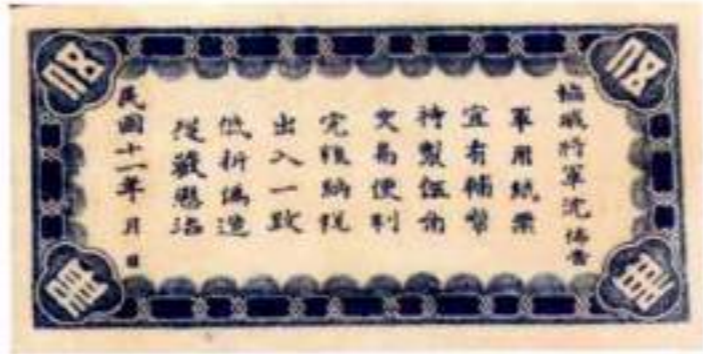 協威將軍沈 佈告
軍用紙票
宜有輔幣
特製伍角
交易便利
完糧納稅
出入一致
低折偽造
從嚴懲治
民國十一年 月 日